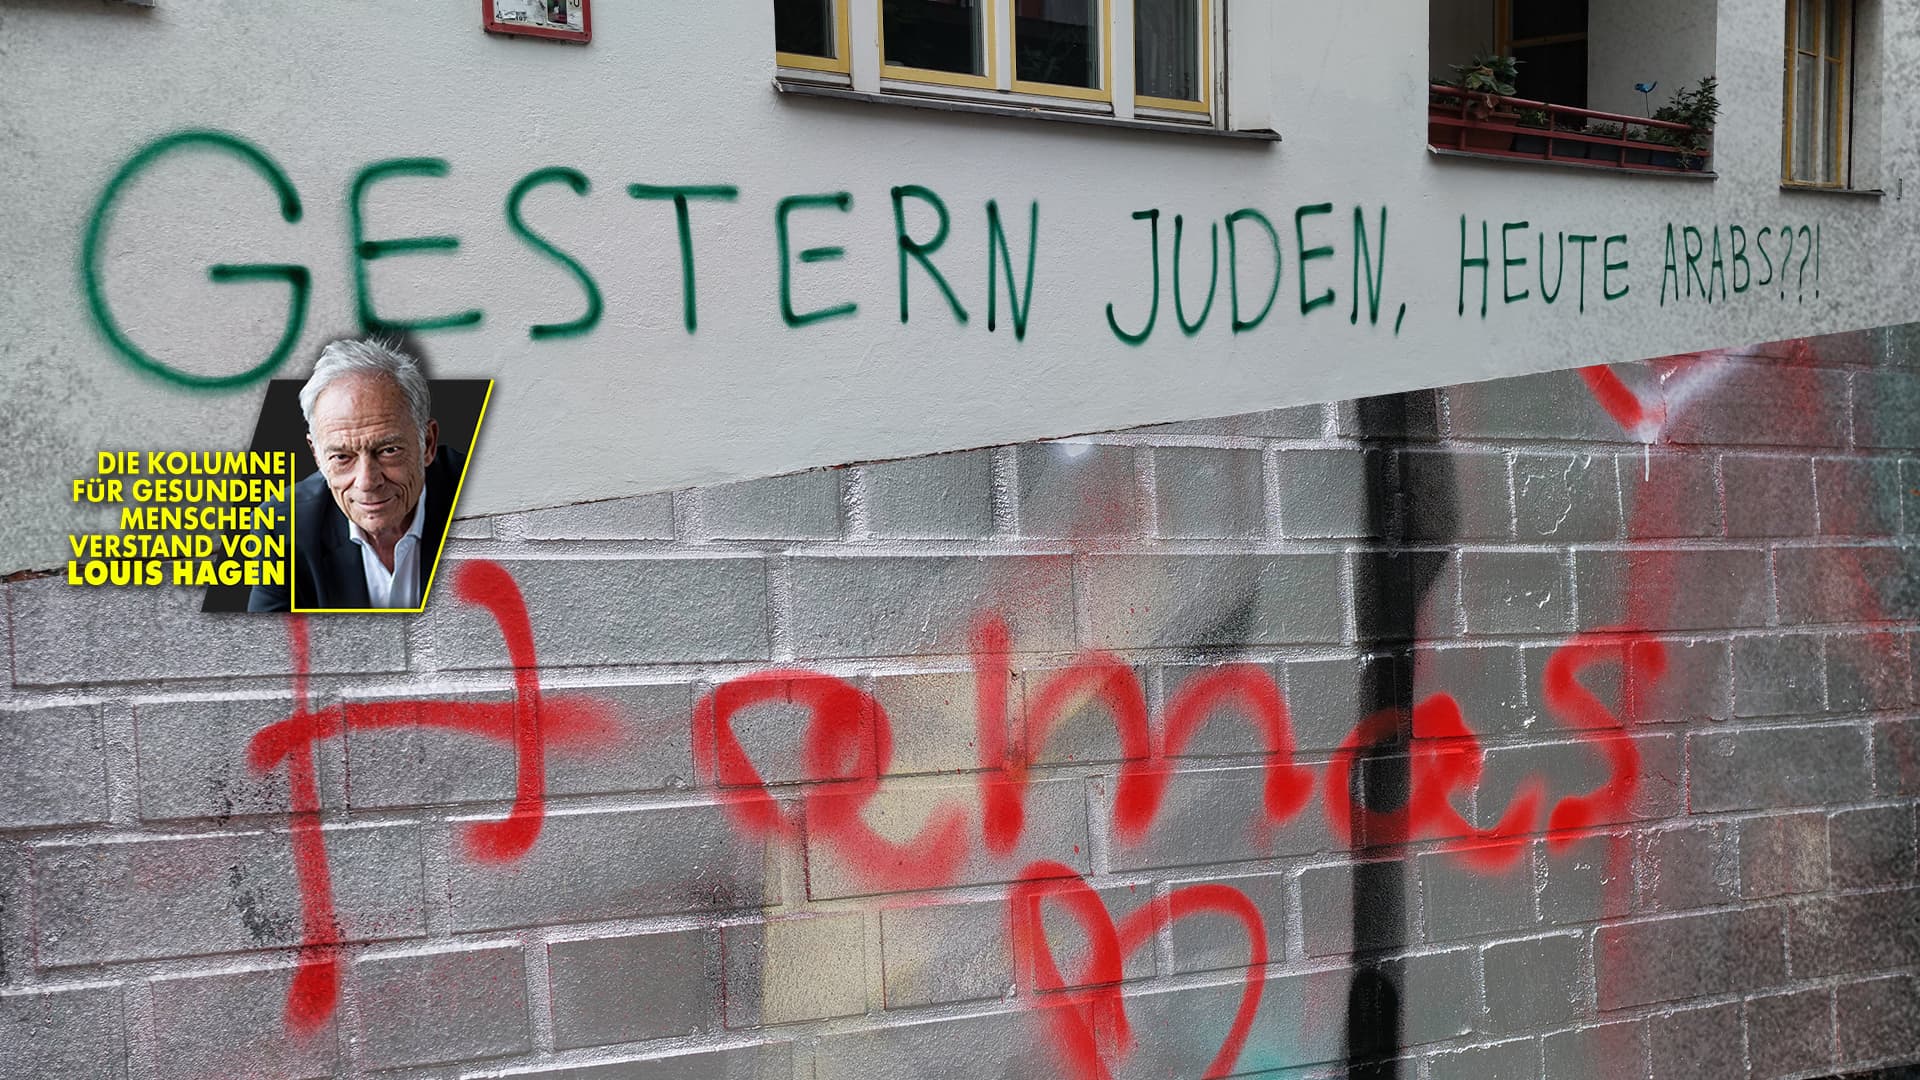 GESTERN JUDEN, HEUTE ARABS??!
DIE KOLUMNE
FÜR GESUNDEN
MENSCHEN-
VERSTAND VON
LOUIS HAGEN
Hamas